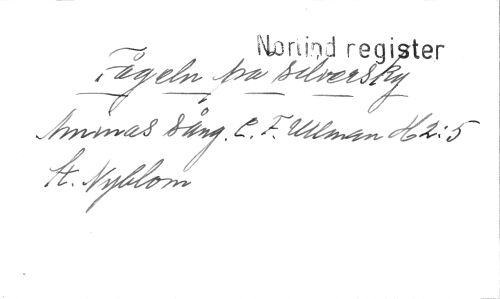 Norlind register
Fågeln på silversky
Aminas sång. C. F. Ullman H2:5
H. Nyblom